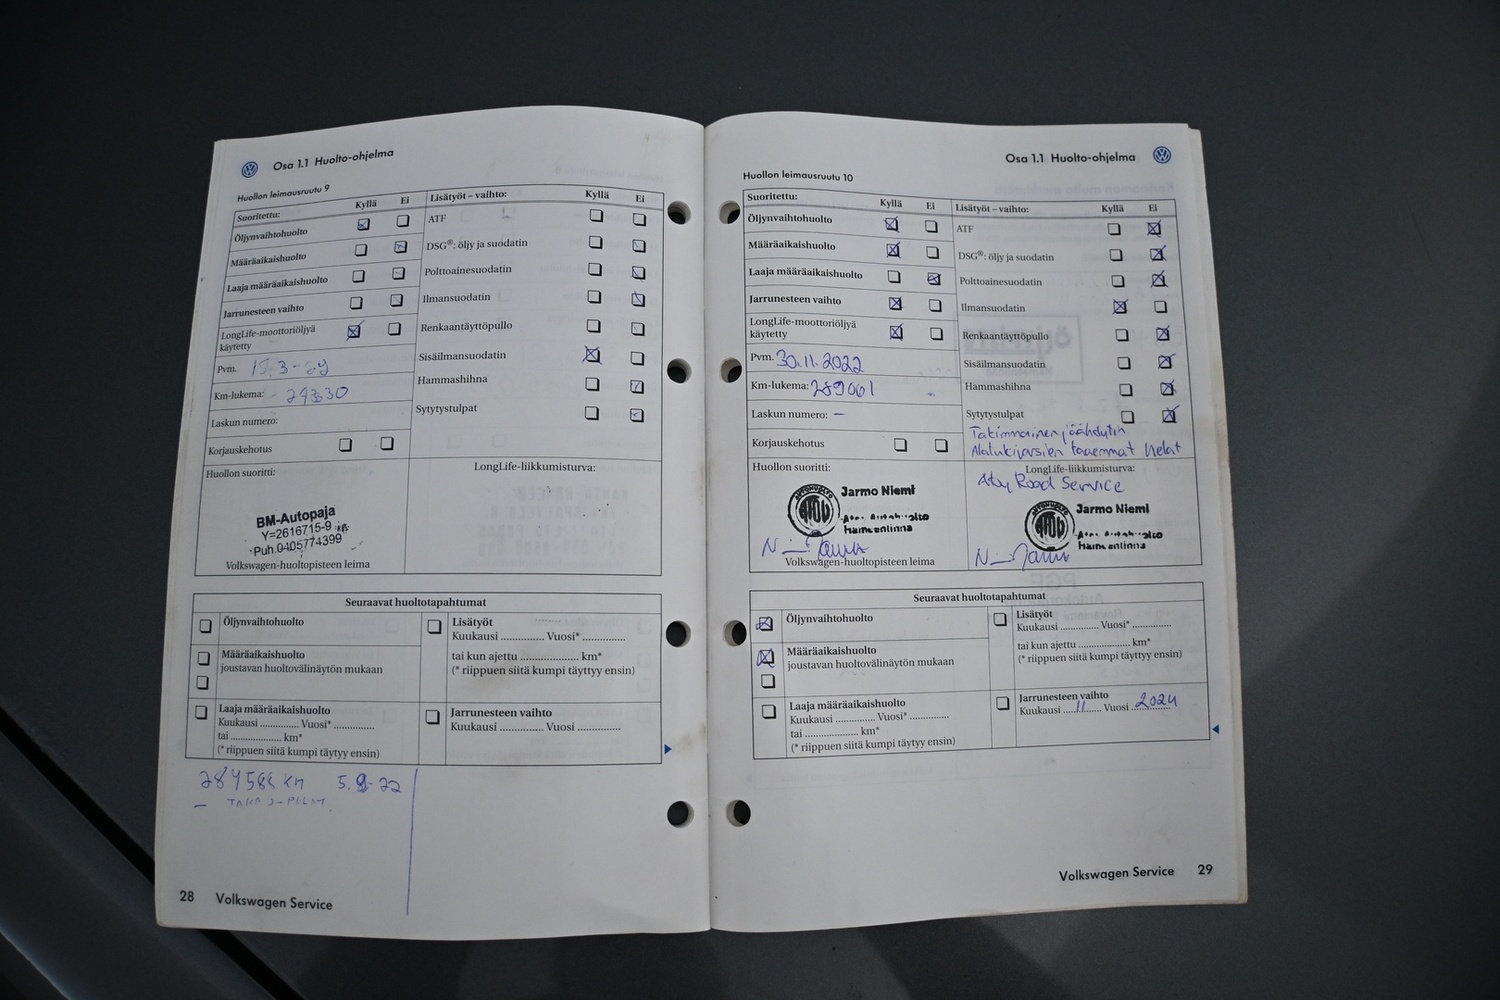 Osa 1.1 Huolto-ohjelma
Huollon leimausruutu 9
Suoritettu: Kyllä Ei
Öljynvaihtohuolto
Määräaikaishuolto
Laaja määräaikaishuolto
Jarrunesteen vaihto
LongLife-moottoriöljyä
käytetty
Pvm.
Km-lukema:
Laskun numero:
Korjauskehotus
Huollon suoritti:
BM-Autopaja
Y=2616715-9
Puh.0405774399
Volkswagen-huoltopisteen leima
Lisätyöt – vaihto: Kyllä Ei
ATF
DSG®: öljy ja suodatin
Polttoainesuodatin
Ilmansuodatin
Renkaantäyttöpullo
Sisäilmansuodatin
Hammashihna
Sytytystulpat
LongLife-liikkumisturva:
Seuraavat huoltotapahtumat
Öljynvaihtohuolto
Määräaikaishuolto
joustavan huoltovälinäytön mukaan
Laaja määräaikaishuolto
Kuukausi .............. Vuosi* ..............
tai ..................... km*
(* riippuen siitä kumpi täytyy ensin)
Lisätyöt
Kuukausi .............. Vuosi* ..............
tai kun ajettu .................... km*
(* riippuen siitä kumpi täyttyy ensin)
Jarrunesteen vaihto
Kuukausi .............. Vuosi ..............
km
28 Volkswagen Service
Osa 1.1 Huolto-ohjelma
Huollon leimausruutu 10
Suoritettu: Kyllä Ei
Öljynvaihtohuolto
Määräaikaishuolto
Laaja määräaikaishuolto
Jarrunesteen vaihto
LongLife-moottoriöljyä
käytetty
Pvm. 30.11.2022
Km-lukema: 289001
Laskun numero: –
Korjauskehotus
Huollon suoritti:
Jarmo Niemi
Hämeenlinna
Volkswagen-huoltopisteen leima
Lisätyöt – vaihto: Kyllä Ei
ATF
DSG®: öljy ja suodatin
Polttoainesuodatin
Ilmansuodatin
Renkaantäyttöpullo
Sisäilmansuodatin
Hammashihna
Sytytystulpat
Takimmainen jäähdytin
Alatukivarsien taaemmat helat
LongLife-liikkumisturva:
Road Service
Jarmo Niemi
Hämeenlinna
Seuraavat huoltotapahtumat
Öljynvaihtohuolto
Määräaikaishuolto
joustavan huoltovälinäytön mukaan
Laaja määräaikaishuolto
Kuukausi .............. Vuosi* ..............
tai ..................... km*
(* riippuen siitä kumpi täytyy ensin)
Lisätyöt
Kuukausi .............. Vuosi* ..............
tai kun ajettu .................... km*
(* riippuen siitä kumpi täyttyy ensin)
Jarrunesteen vaihto
Kuukausi ....11...... Vuosi 2024
Volkswagen Service 29